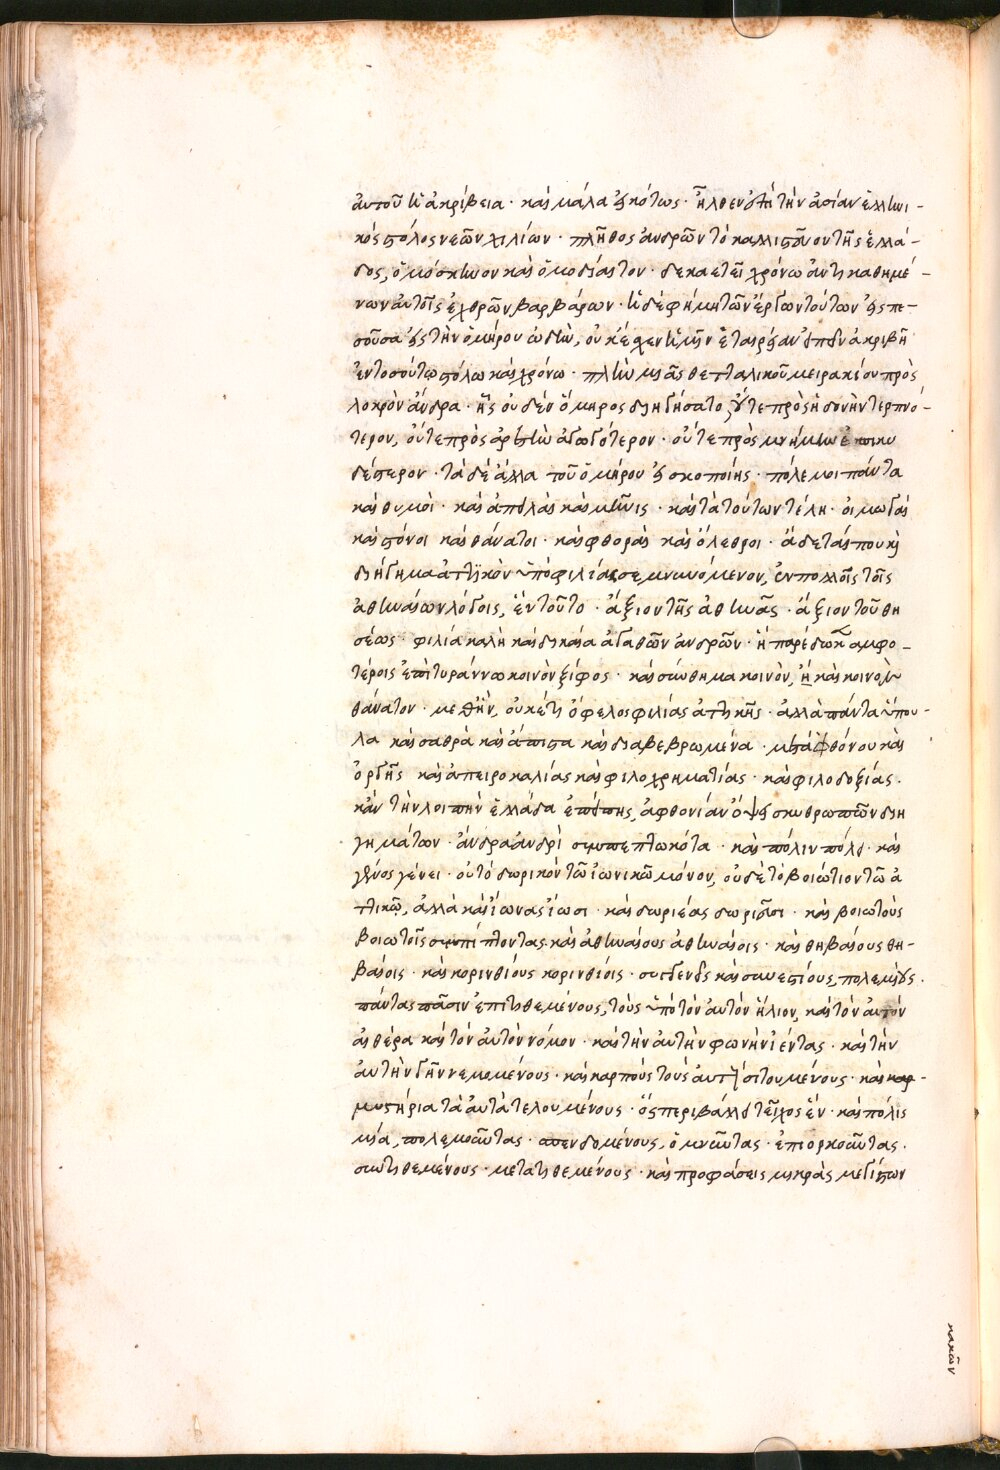 αὐτοῦ ἡ ἀκρίβεια · καὶ μάλα εἰκότως · ἦλθεν ἐπὶ τὴν ἀσίαν ἑλληνι-
κὸς στόλος νεῶν χιλίων · πλῆθος ἀνδρῶν τὸ καλλιστεῦον τῆς ἑλλά-
δος, ὁμόσκηνον καὶ ὁμοδίαιτον · δεκαετεῖ χρόνω ἀντικαθημέ-
νων αὐτοῖς ἐχθρῶν βαρβάρων · ἡ δὲ φήμη τῶν ἔργων τούτων εἰσπε-
σοῦσα εἰς τὴν ὁμήρου ὠδὴν, οὐκ ἔχει ἡμῖν ἑταιρείαν εἰπεῖν ἀκριβῆ
ἐν τοσούτω στόλω καὶ χρόνω · πλὴν μιᾶς θετταλικοῦ μειρακίου πρὸς
λοκρὸν ἄνδρα · ἧς οὐδὲν ὅμηρος διηγήσατο, οὔτε πρὸς ἡδονὴν τερπνό-
τερον, οὔτε πρὸς ἀρετὴν ἀγωγότερον · οὔτε πρὸς μνήμην ἐπικυ
δέστερον · τὰ δὲ ἄλλα τοῦ ὁμήρου εἰ σκοποίης · πόλεμοι πάντα
καὶ θυμοὶ · καὶ ἀπειλαὶ καὶ μῆνις · καὶ τὰ τούτων τέλη · οἰμωγαὶ
καὶ στόνοι καὶ θάνατοι · καὶ φθοραὶ καὶ ὄλεθροι · ἄδεται που καὶ
διήγημα ἀττικὸν ὑπὸ φιλίας σεμνυνόμενον, ἐν πολλοῖς τοῖς
ἀθηναίων λόγοις, ἓν τοῦτο · ἄξιον τῆς ἀθηνᾶς · ἄξιον τοῦ θη
σέως · φιλία καλὴ καὶ δικαία ἀγαθῶν ἀνδρῶν · ἣ παρέδωκεν ἀμφο-
τέροις ἐπὶ τυράννω κοινὸν ξίφος · καὶ σύνθημα κοινὸν, ἢ καὶ κοινὸν
θάνατον · μεθ' ἣν, οὐκέτι ὄφελος φιλίας ἀττικῆς · ἀλλὰ πάντα ὕπου-
λα καὶ σαθρὰ καὶ ἄπιστα καὶ διαβεβρωμένα · μεστὰ φθόνου καὶ
ὀργῆς καὶ ἀπειροκαλίας καὶ φιλοχρηματίας · καὶ φιλοδοξίας ·
κἂν τὴν λοιπὴν ἑλλάδα ἐπέλθης, ἀφθονίαν ὄψει σκυθρωπῶν διη
γημάτων · ἄνδρα ἀνδρὶ συμπεπτωκότα · καὶ πόλιν πόλει · καὶ
γένος γένει · οὐ τὸ δωρικὸν τῶ ἰωνικῶ μόνον, οὐδὲ τὸ βοιώτιον τῶ ἀ
ττικῶ, ἀλλὰ καὶ ἴωνας ἴωσι · καὶ δωριέας δωριεῦσι · καὶ βοιωτοὺς
βοιωτοῖς συμπίπτοντας καὶ ἀθηναίους ἀθηναίοις · καὶ θηβαίους θη-
βαίοις · καὶ κορινθίους κορινθίοις · συγγενεῖς καὶ συνεστίους, πολεμίους ·
πάντας πᾶσιν ἐπιτιθεμένους, τοὺς ὑπὸ τὸν αὐτὸν ἥλιον, καὶ τὸν αὐτὸν
αἰθέρα καὶ τὸν αὐτὸν νόμον · καὶ τὴν αὐτὴν φωνὴν ἱέντας · καὶ τὴν
αὐτὴν γῆν νεμομένους · καὶ καρποὺς τοὺς αὐτοὺς σιτουμένους · καὶ
μυστήρια τὰ αὐτὰ τελουμένους · οὓς περιβάλλει τεῖχος ἓν · καὶ πόλις
μία, πολεμοῦντας · σπενδομένους, ὀμνῦντας · ἐπιορκοῦντας ·
συντιθεμένους · μετατιθεμένους · καὶ προφάσεις μικρὰς μεγίστων
κακῶν